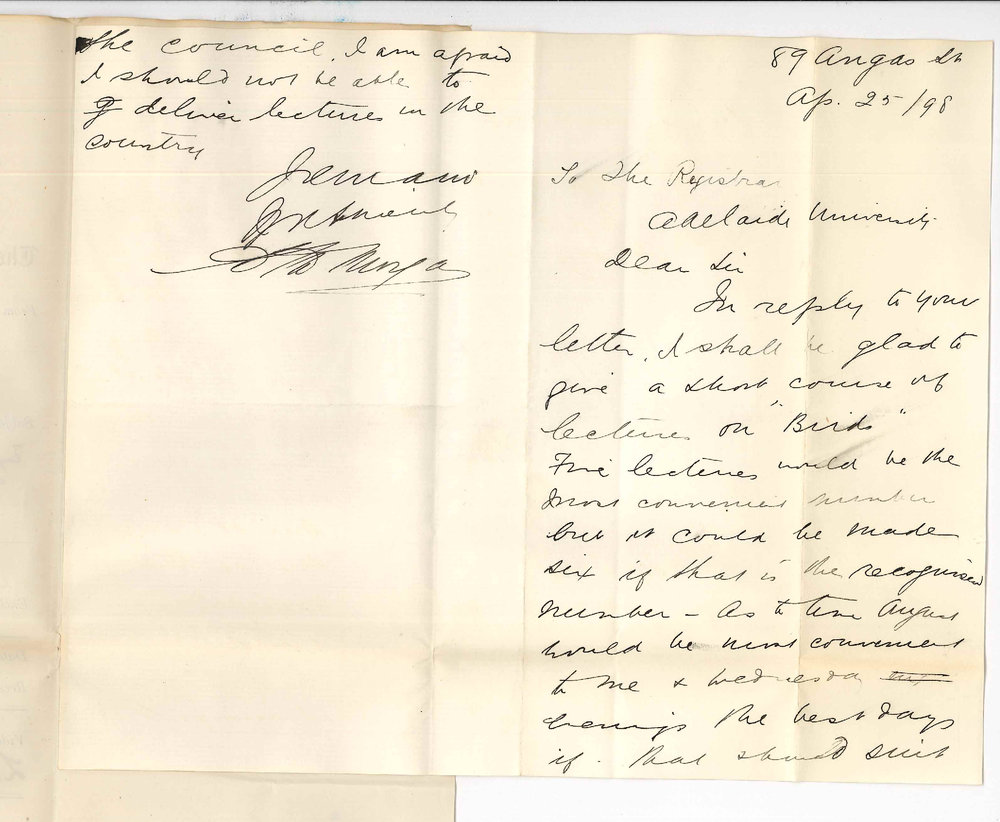 89 Angas St
Ap. 25/98
To the Registrar
Adelaide University
Dear Sir
In reply to your
letter, I shall be glad to
give a short course of
lectures on "Birds"
Five lectures would be the
most convenient number
but it could be made
six if that is the recognised
number – As to time August
would be most convenient
to me & Wednesday
evenings the best days
if that should suit
the council, I am afraid
I should not be able to
deliver lectures in the
country
I remain
Morgan